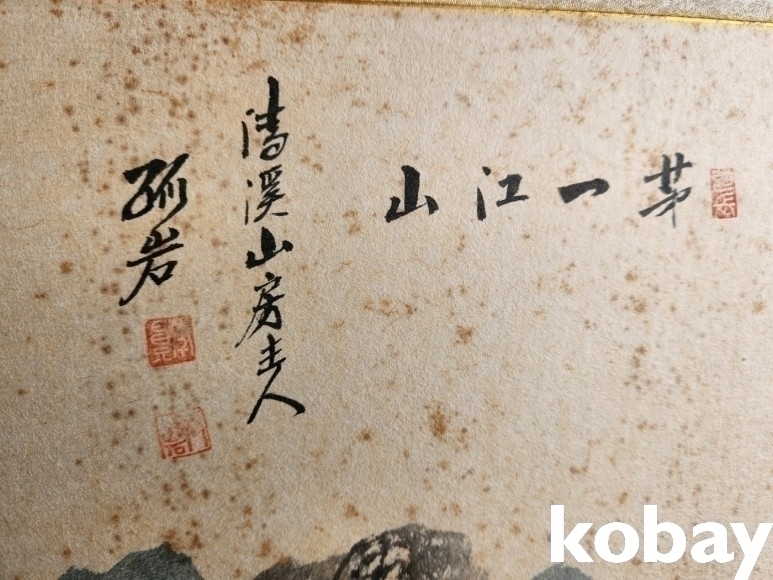 苐一江山
清溪山房主人
孤岩
kobay